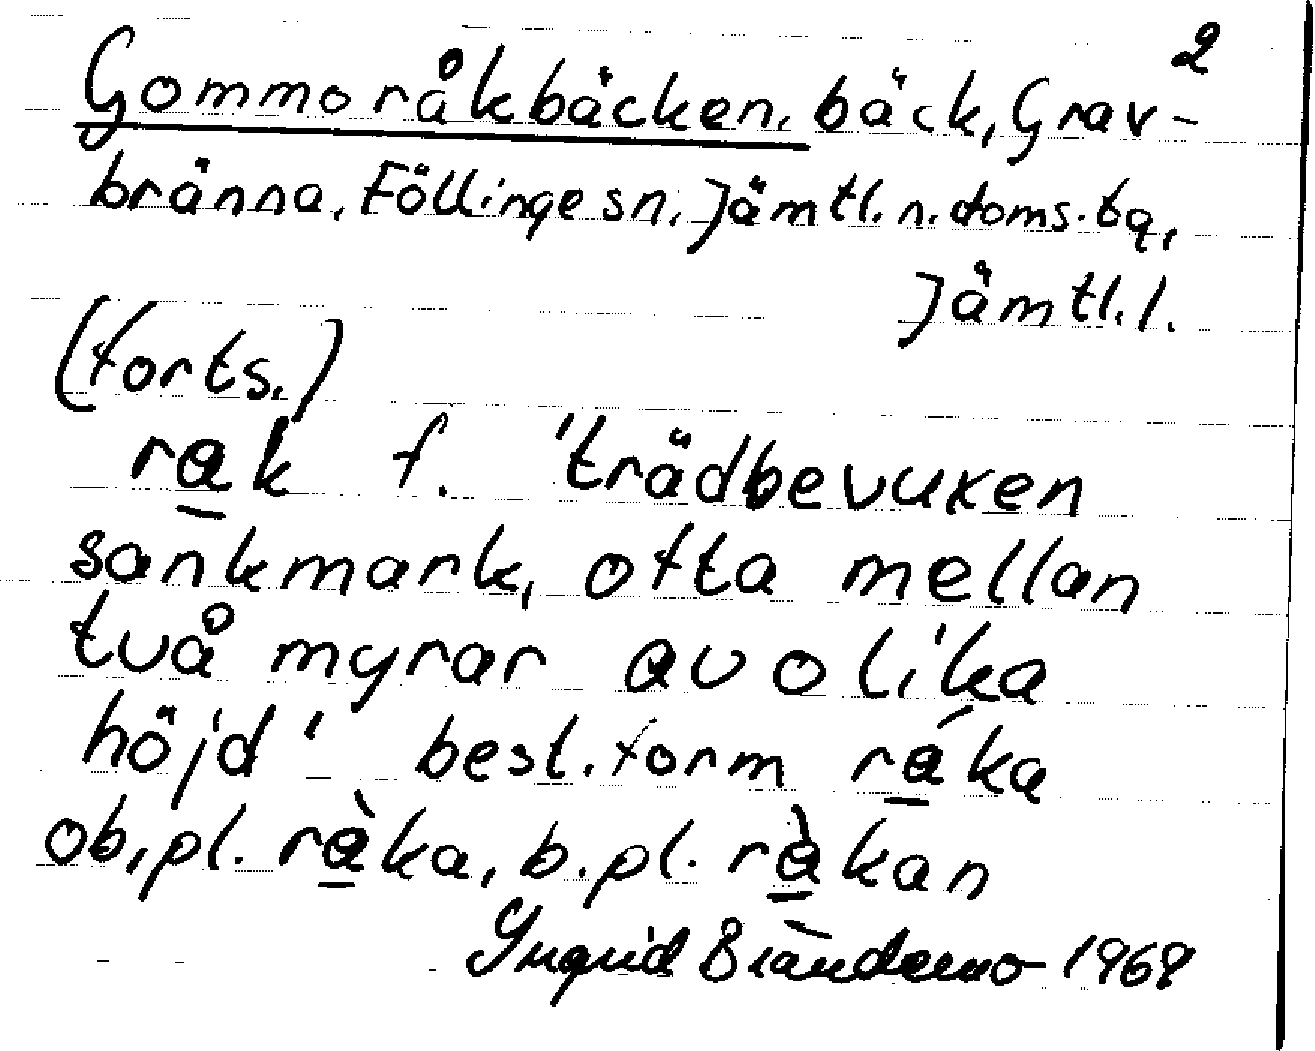 2
Gommoråkbäcken, bäck, Grav-
bränna, Föllinge sn, Jämtl. n. doms. tg,
Jämtl. l.
(forts.)
ra̲k f. 'trädbevuxen
sankmark, ofta mellan
två myrar av olika
höjd' best. form rá̲ka
ob, pl. rà̲ka, b. pl. rà̲kan
Ingrid